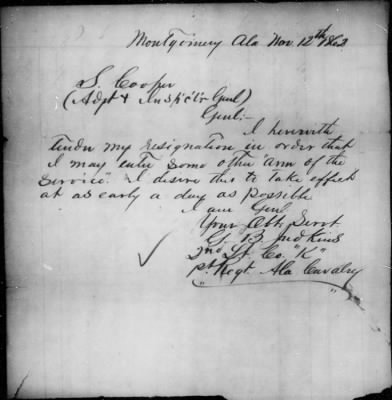 Montgomery Ala Nov. 12th 1862
S. Cooper
(Adjt & Inspct'r Genl)
Genl:-
I herewith
tender my resignation in order that
I may enter some other arm of the
service. I desire this to take effect
at as early a day as possible
I am Genl
Your Obt. Servt.
G. B. Judkins
2nd Lt. Co. "K"
1st Regt Ala Cavalry